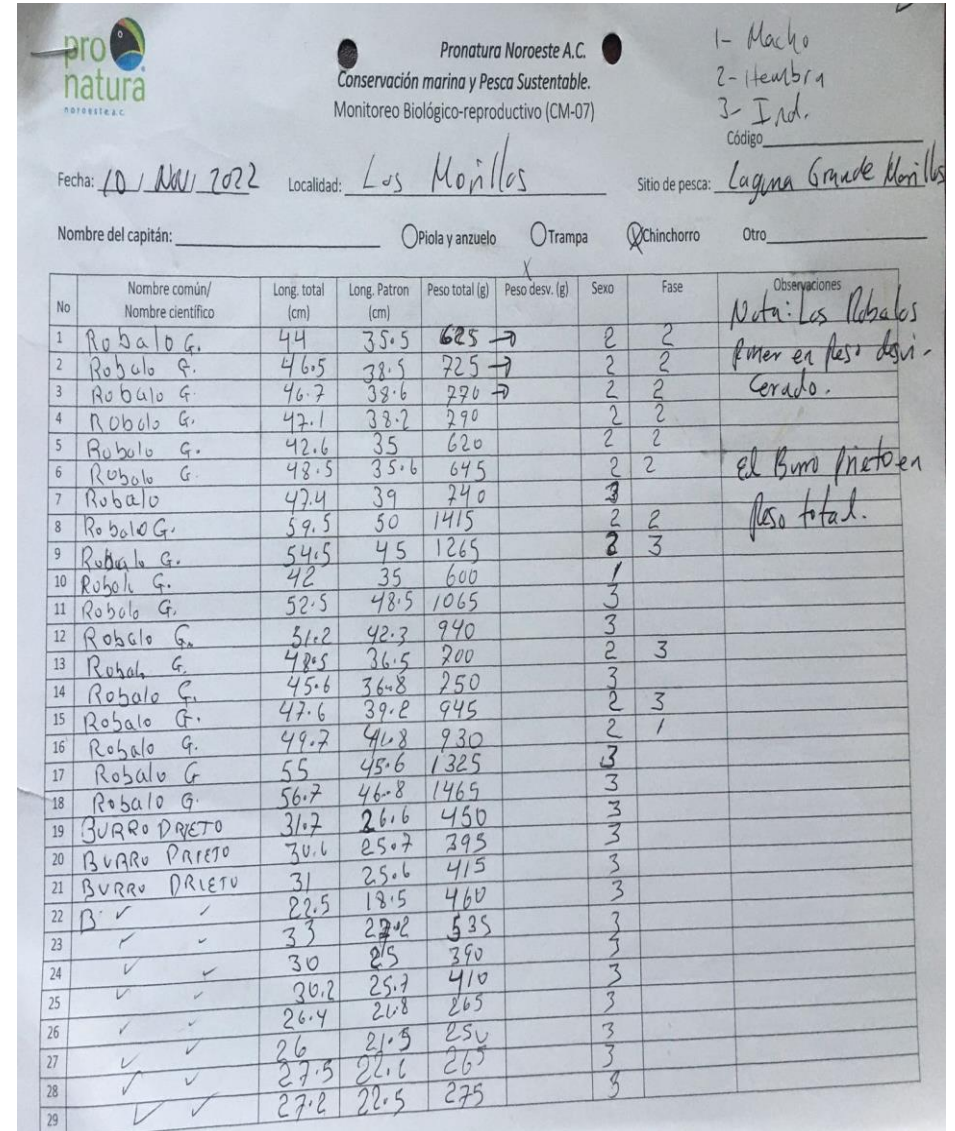 pro
natura
noroeste a.c.
Pronatura Noroeste A.C.
Conservación marina y Pesca Sustentable.
Monitoreo Biológico-reproductivo (CM-07)
1- Macho
2- Hembra
3- Ind.
Código
Fecha: 10 / Nov / 2022 Localidad: Los Morillos Sitio de pesca: Laguna Grande Morillos
Nombre del capitán: Piola y anzuelo Trampa X Chinchorro Otro
X
No Nombre común/ Nombre científico Long. total (cm) Long. Patron (cm) Peso total (g) Peso desv. (g) Sexo Fase Observaciones
1 Robalo G. 44 35.5 625 → 2 2
2 Robalo G. 46.5 38.5 725 → 2 2
3 Robalo G. 46.7 38.6 770 → 2 2
4 Robalo G. 47.1 38.2 790 2 2
5 Robalo G. 42.6 35 620 2 2
6 Robalo G. 48.5 35.6 645 2 2
7 Robalo 47.4 39 740 3
8 Robalo G. 59.5 50 1415 2 2
9 Robalo G. 54.5 45 1265 2 3
10 Robalo G. 42 35 600 1
11 Robalo G. 52.5 48.5 1065 3
12 Robalo G. 51.2 42.3 940 3
13 Robalo G. 48.5 36.5 700 2 3
14 Robalo G. 45.6 36.8 750 3
15 Robalo G. 47.6 39.2 945 2 3
16 Robalo G. 49.7 41.8 930 2 1
17 Robalo G 55 45.6 1325 3
18 Robalo G. 56.7 46.8 1465 3
19 BURRO PRIETO 31.7 26.6 450 3
20 BURRO PRIETO 30.6 25.7 395 3
21 BURRO PRIETO 31 25.6 415 3
22 B ✓ ✓ 22.5 18.5 460 3
23 ✓ ✓ 33 27.2 535 3
24 ✓ ✓ 30 25 390 3
25 ✓ ✓ 30.2 25.7 410 3
26 ✓ ✓ 26.4 21.8 265 3
27 ✓ ✓ 26 21.5 250 3
28 ✓ ✓ 27.5 22.6 265 3
29 ✓ ✓ 27.2 22.5 275 3
Nota: Los Robalos
en Peso desvi-
cerado.
El Burro Prieto en
Peso total.